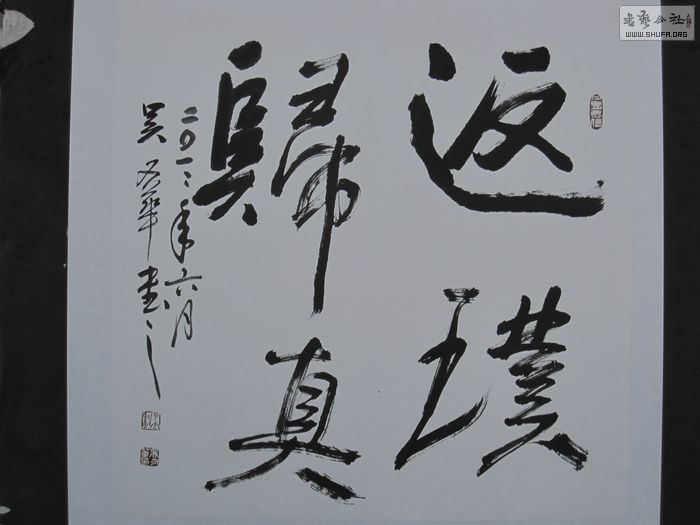 返璞
歸真
二〇一二年六月
吴 華書之
書藝公社
WWW.SHUFA.ORG